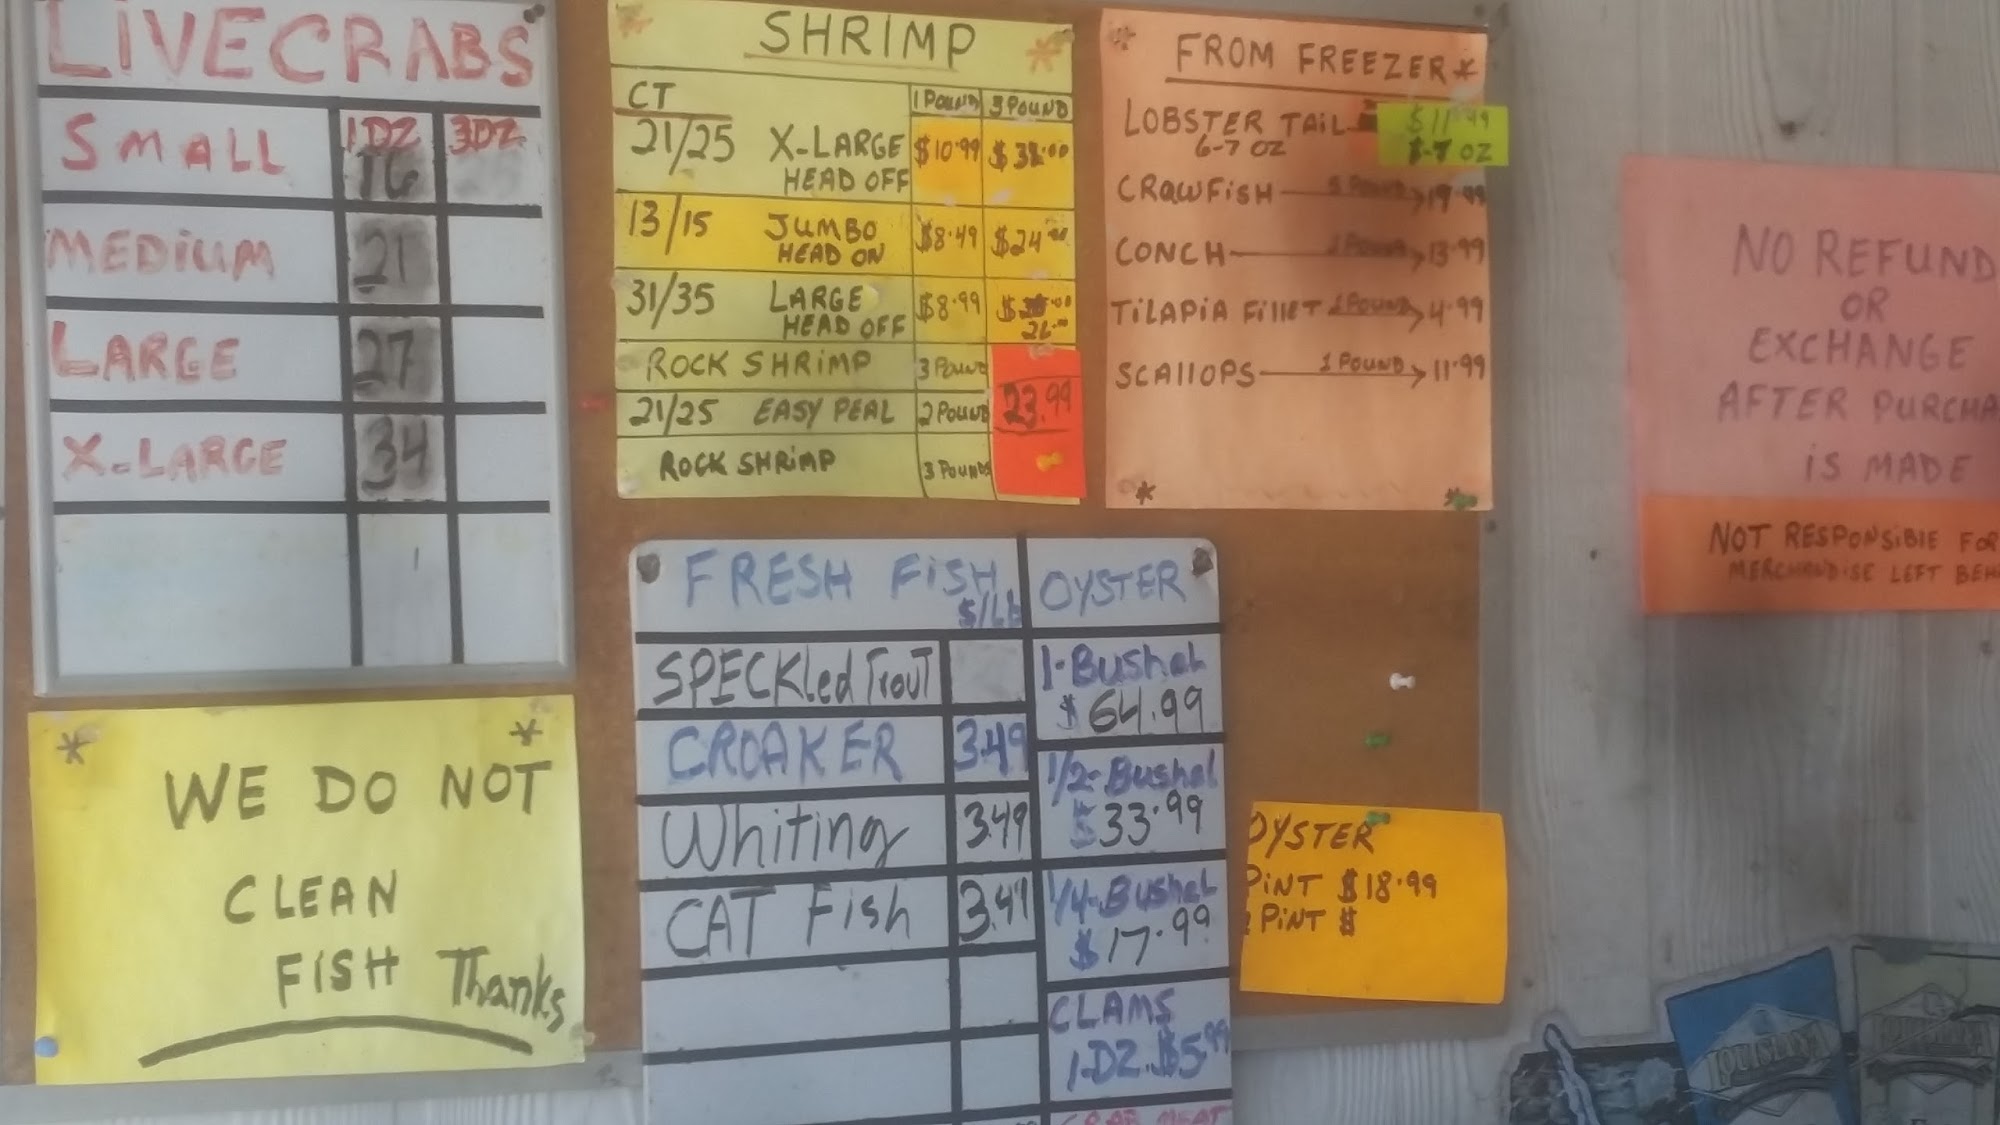 LIVECRABS
1DZ 3DZ
SMALL 16
MEDIUM 21
LARGE 27
X-LARGE 34
WE DO NOT
CLEAN
FISH Thanks
SHRIMP
CT 1 POUND 3 POUND
21/25 X-LARGE $10.99
HEAD OFF
13/15 JUMBO $8.49 $24
HEAD ON
31/35 LARGE $8.99
HEAD OFF 26
ROCK SHRIMP 3 POUND
21/25 EASY PEAL 2 POUND 23.99
ROCK SHRIMP 3 POUNDS
FROM FREEZER
LOBSTER TAIL $11.99
6-7 OZ 6-7 OZ
CRAWFISH 5 POUND 19.99
CONCH 13.99
TILAPIA FILLET 2 POUND 4.99
SCALLOPS 1 POUND 11.99
FRESH FISH
$/LB
SPECKled TrouT
CROAKER 3.49
Whiting 3.49
CAT Fish 3.49
OYSTER
1-Bushel
$64.99
1/2-Bushel
$33.99
1/4-Bushel
$17.99
CLAMS
1-DZ. $5.99
CRAB MEAT
OYSTER
PINT $18.99
PINT $
NO REFUND
OR
EXCHANGE
AFTER PURCHA
IS MADE
NOT RESPONSIBLE FOR
MERCHANDISE LEFT BEH
LOUISIANA
LOUISIANA